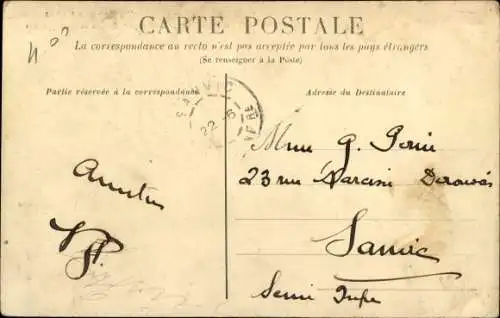 CARTE POSTALE
La correspondance au recto n'est pas acceptée par tous les pays étrangers
(Se renseigner à la Poste)
Partie réservée à la correspondance
Adresse du Destinataire
22-6
Mme G.
23 rue
Sanvic
Seine Infre